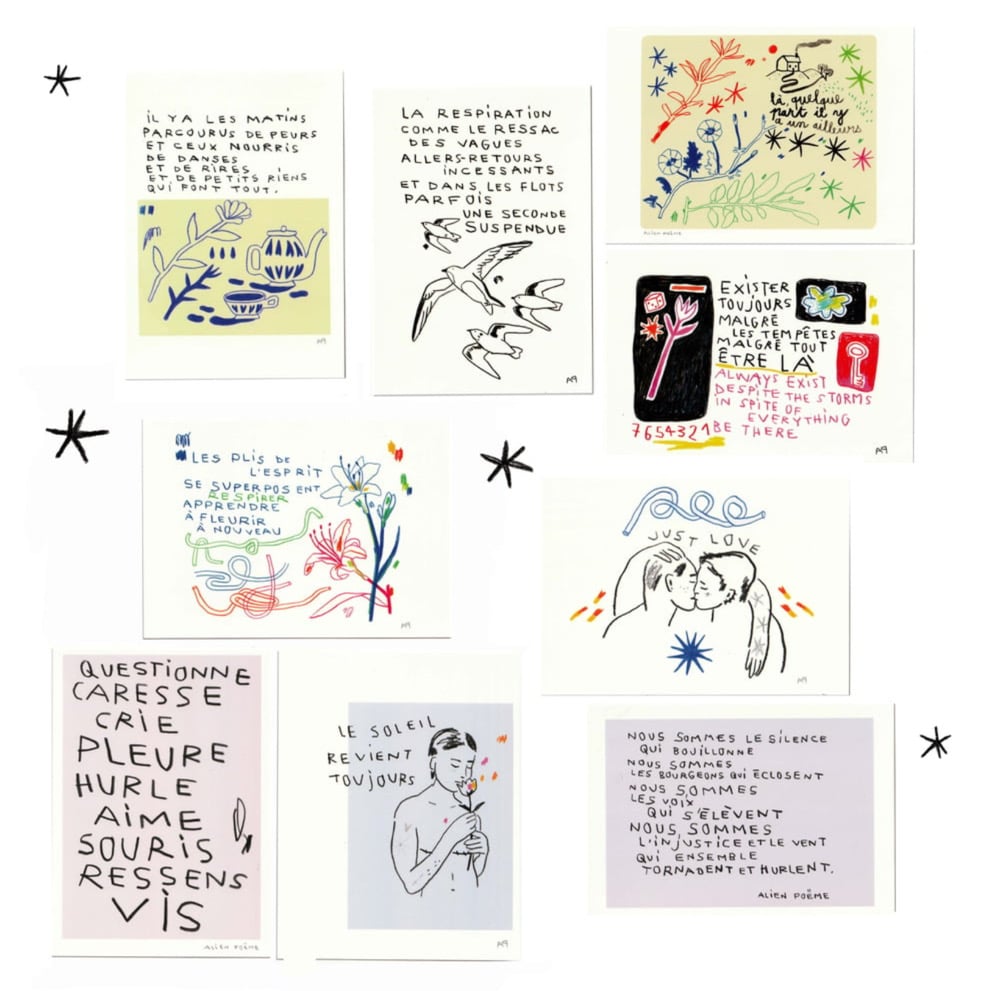 iL Y A LES MATiNS
PARCOURUS DE PEURS
ET CEUX NOURRiS
DE DANSES
ET DE RiRES
ET DE PETiTS RiENS
QUi FONT TOUT.
AP
LA RESPiRATiON
COMME LE RESSAC
DES VAGUES
ALLERS-RETOURS
iNCESSANTS
ET DANS LES FLOTS
PARFOiS
UNE SECONDE
SUSPENDUE
AP
là, quelque
part il y
a un ailleurs
ALiEN POÈME
EXiSTER
TOUJOURS
MALGRÉ
LES TEMPÊTES
MALGRÉ TOUT
ÊTRE LÀ
ALWAYS EXiST
DESPiTE THE STORMS
iN SPiTE OF
EVERYTHiNG
BE THERE
7654321
AP
LES PLiS DE
L'ESPRiT
SE SUPERPOSENT
RESPiRER
APPRENDRE
À FLEURiR
À NOUVEAU
AP
JUST LOVE
AP
QUESTiONNE
CARESSE
CRiE
PLEURE
HURLE
AiME
SOURiS
RESSENS
ViS
ALiEN POÈME
LE SOLEiL
REViENT
TOUJOURS
AP
NOUS SOMMES LE SiLENCE
QUi BOUiLLONNE
NOUS SOMMES
LES BOURGEONS QUi ÉCLOSENT
NOUS SOMMES
LES VOiX
QUi S'ÉLÈVENT
NOUS SOMMES
L'iNJUSTiCE ET LE VENT
QUi ENSEMBLE
TORNADENT ET HURLENT.
ALiEN POÈME